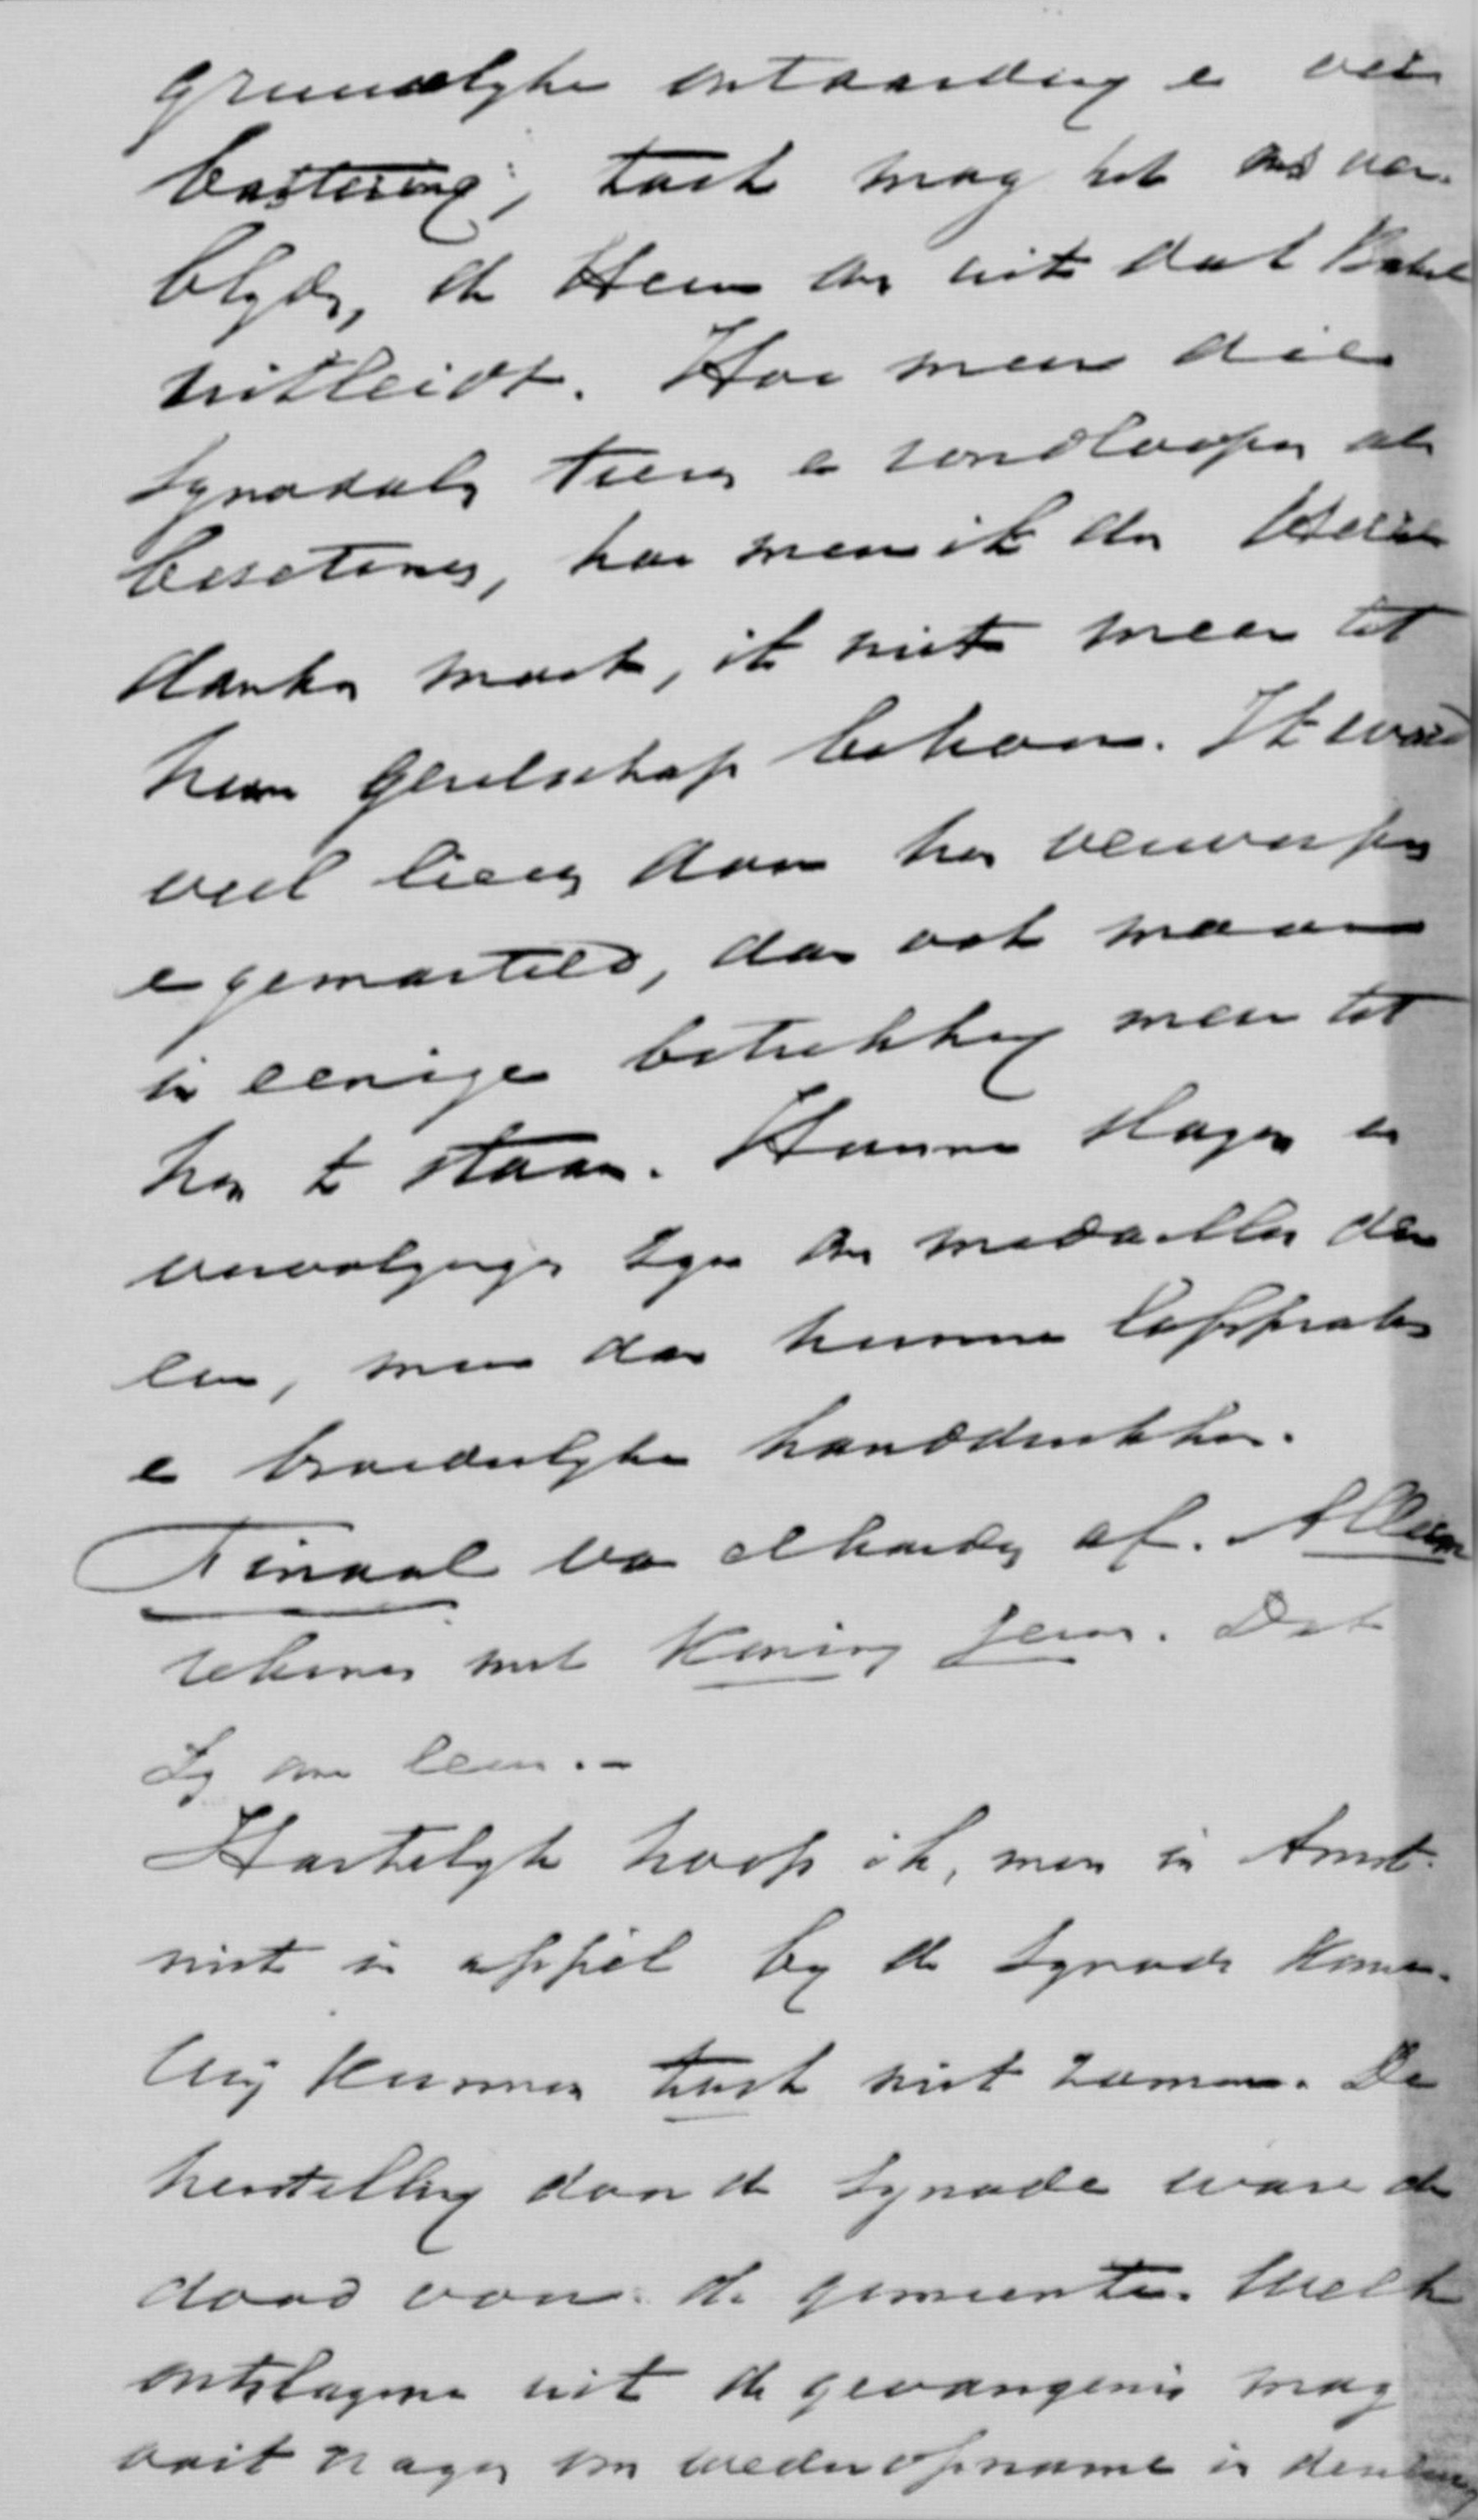 gruwelyke ontaarding en ver
bastering, toch mag het ons ver-
blyden, de Heer ons uit dat Babel
uitleidt. Hoe meer die
Synodalen tieren en rondloopen als
bezetenen, hoe meer ik den Heere
danken moet, ik niet meer tot
hun gezelschap behoor. Ik word
veel liever door hen verworpen
en gemarteld, dan ook maar
in eenige betrekking meer tot
hen te staan. Hunne slagen en
vervolgingen zyn ons medailles der
eer, meer dan hunne lofspraken
en broederlyke handdrukken.
Finaal van elkander af. Alleen
rekenen met Koning Jezus. Dat
zy onze leus.-
Hartelyk hoop ik, men in Amst.
niet in appèl by de Synode kome.
Wij kunnen toch niet zamen. De
herstelling door de Synode ware de
dood voor de gemeente. Welk
ontslagene uit de gevangenis mag
ooit vragen om wederopname in